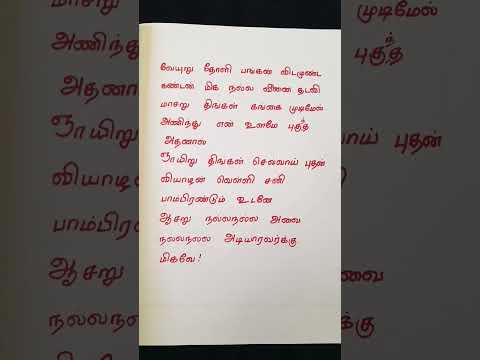 வேயுறு தோளி பங்கன் விடமுண்ட
கண்டன் மிக நல்ல வீணை தடவி
மாசறு திங்கள் கங்கை முடிமேல்
அணிந்து என் உளமே புகுந்த
அதனால்
ஞாயிறு திங்கள் செவ்வாய் புதன்
வியாழன் வெள்ளி சனி
பாம்பிரண்டும் உடனே
ஆசறு நல்லநல்ல அவை
நல்லநல்ல அடியாரவர்க்கு
மிகவே!